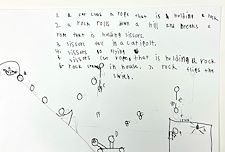 1. a car cuts a rope that is holding a rock
2. a rock rolls down a hill and breaks a
rope that is holding sissors.
3. sissors are in a catipolt.
4. sissors go flying
5. sissors cut rope that is holding a rock
6 rock in house. 7. rock flips the
swich.